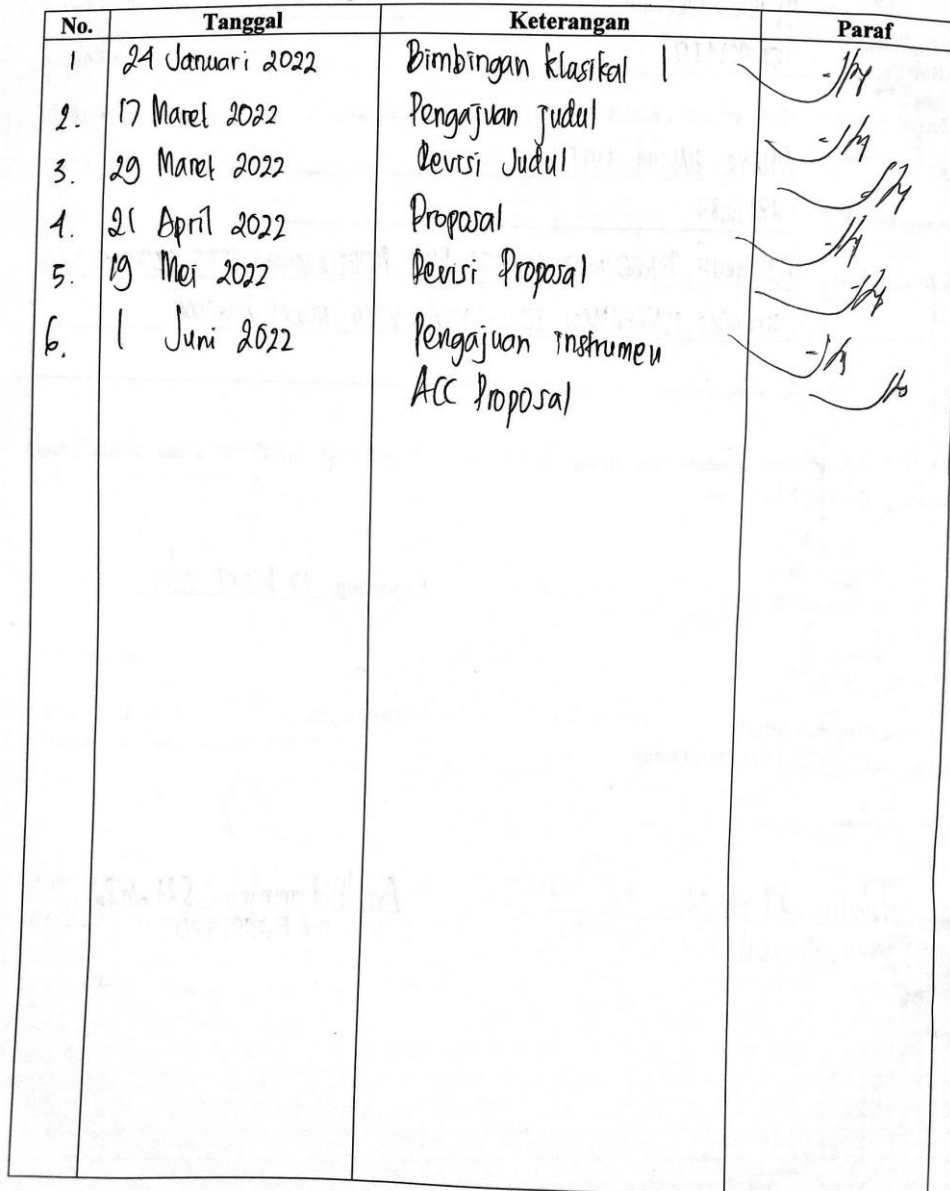 No. Tanggal Keterangan Paraf
1. 24 Januari 2022 Bimbingan klasikal 1
2. 17 Maret 2022 Pengajuan Judul
3. 29 Maret 2022 Revisi Judul
4. 21 April 2022 Proposal
5. 19 Mei 2022 Revisi Proposal
6. 1 Juni 2022 Pengajuan instrumen
ACC Proposal